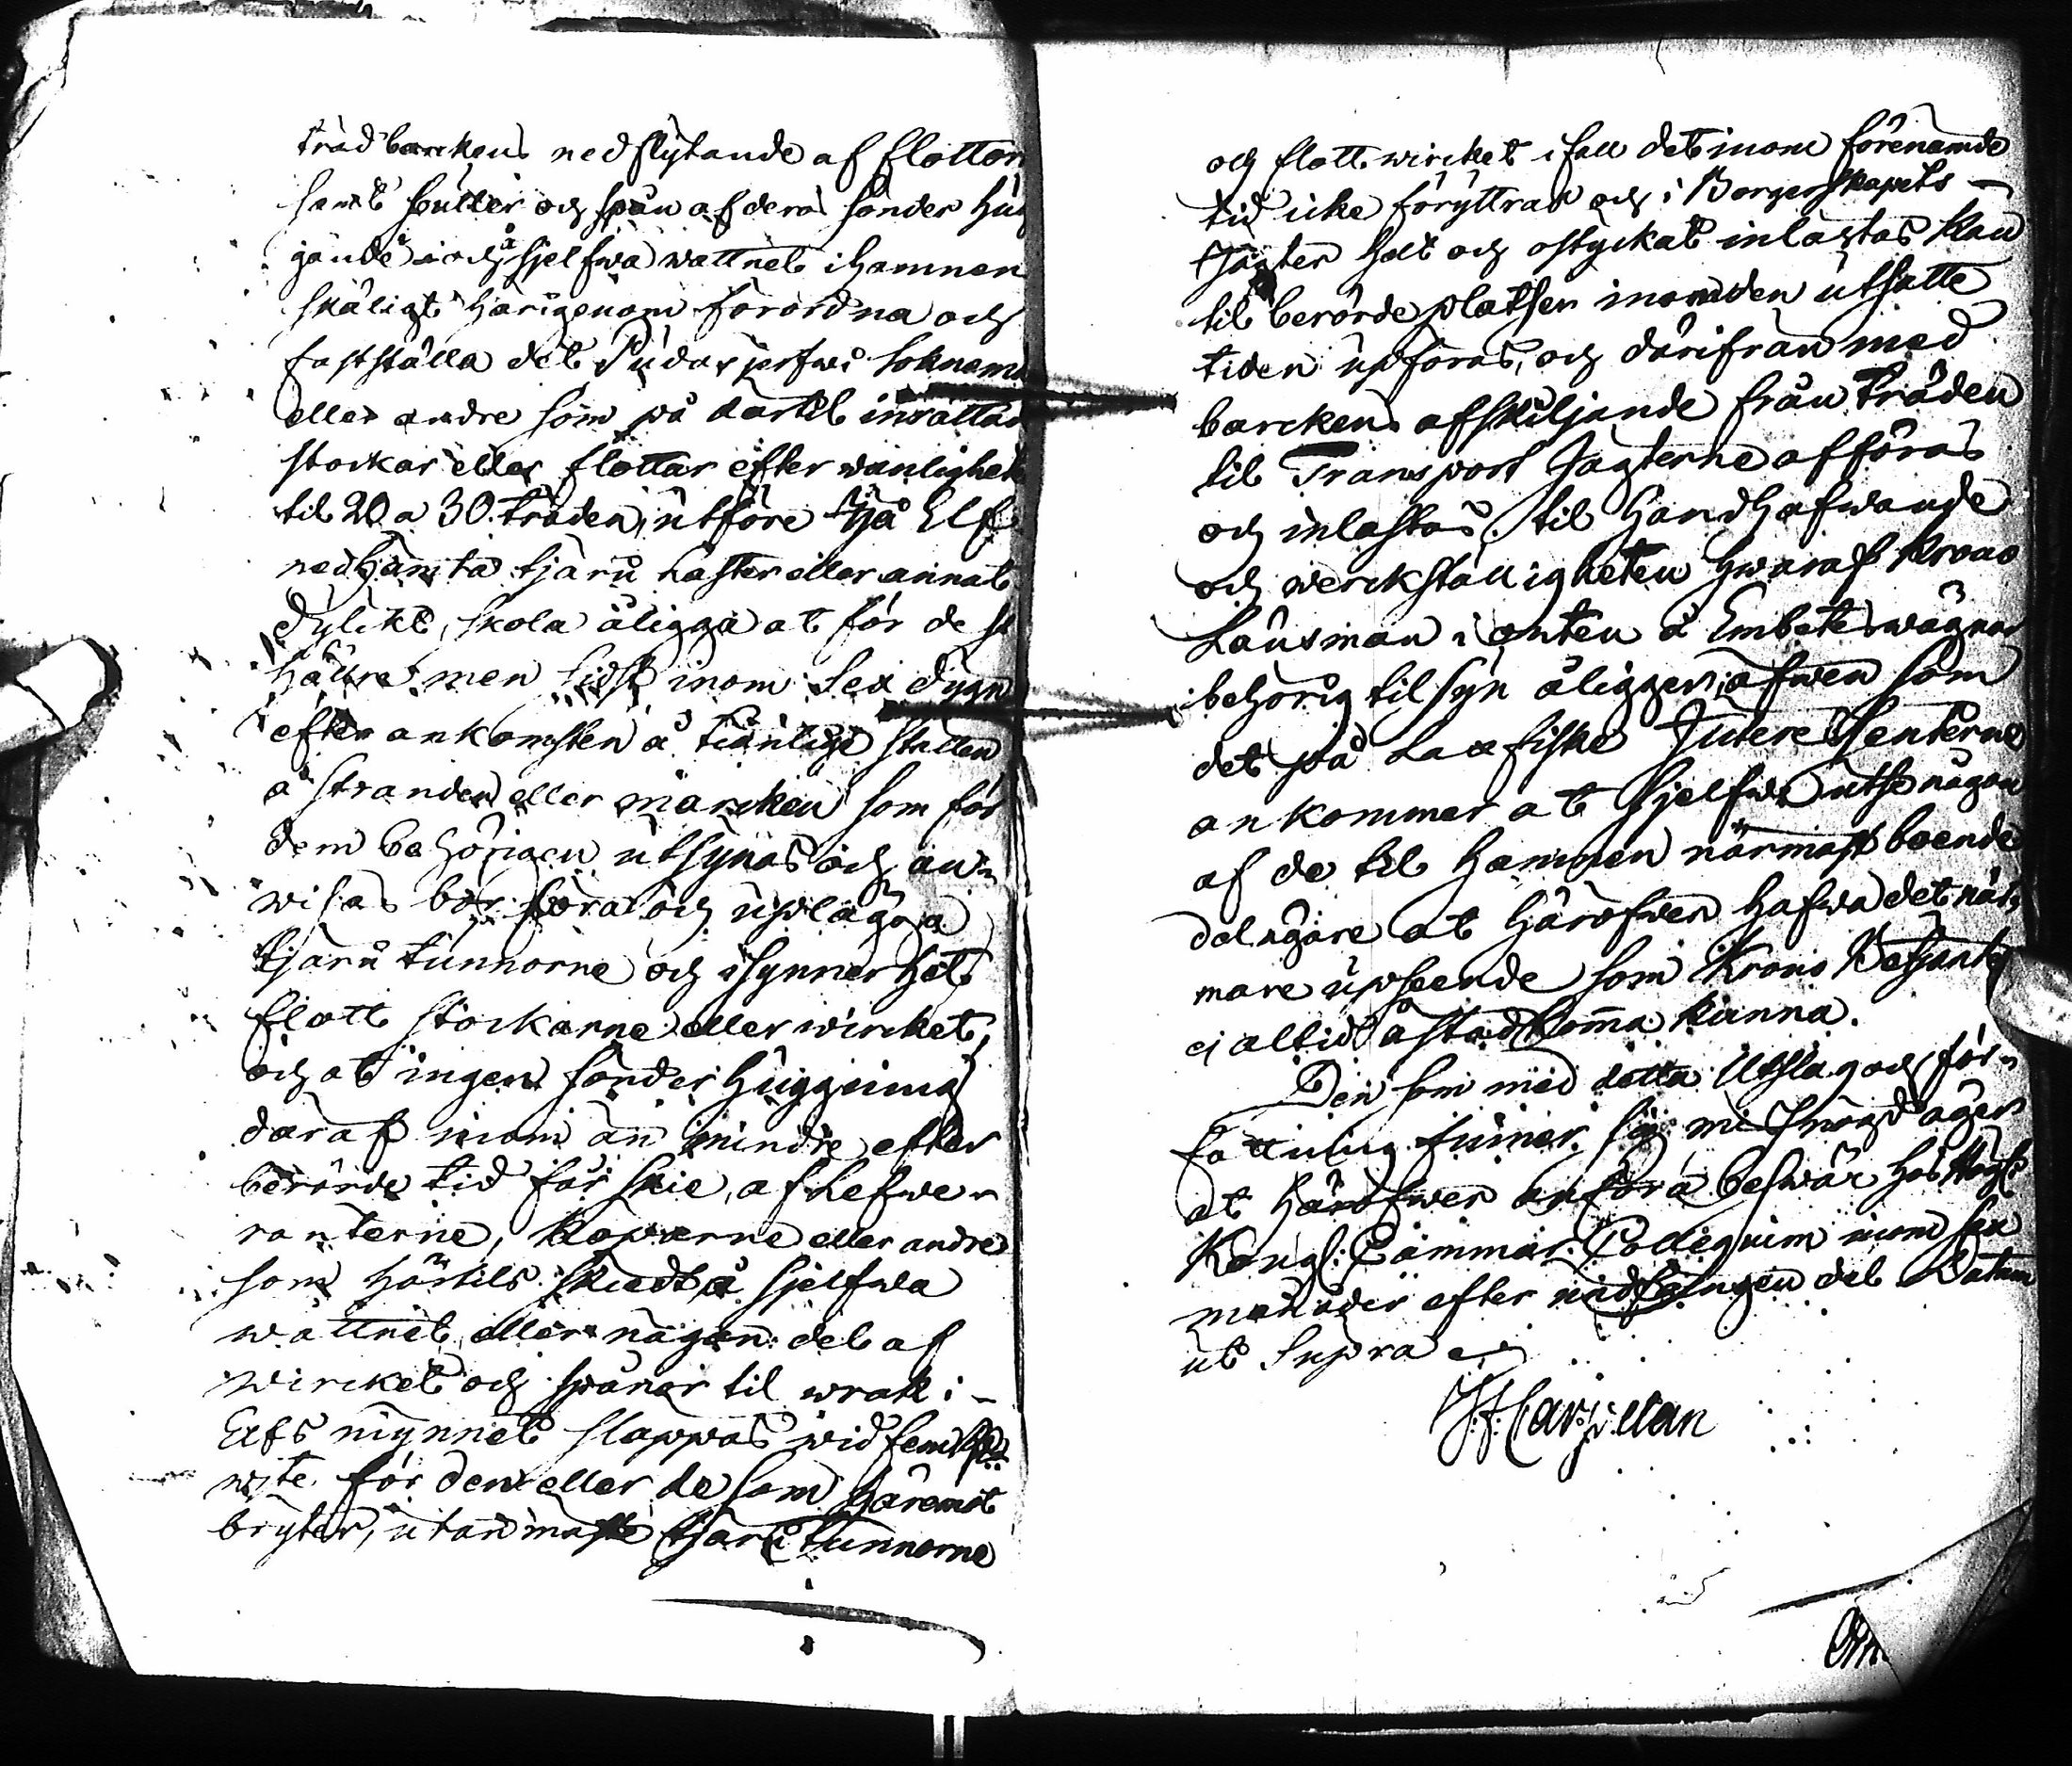 trädbarkens nedflytande af flottor
samt buller och spån af deras sönder hug
gande i och å sjelfwa wattnet i hamnen
skäligt härigenom förordna och
fastställa det Pudasjerfwi Sokneme
eller andre som på dertil insattad
stockar eller flottar efter wanligheten
til 20 a 30. träden, utföre Ijå Elf
nedhämta tjäru laster eller annat
dylikt, skola åligga at för de st
hällre men sidst inom Sex dygn
efter ankomsten å tienlige ställen
å stranden eller marcken som för
dem behörigen utsynas och an-
wisas bör föra och uplägga
tjäru tunnorne och i synnerhet
flott stockarne eller wircket,
och at ingen sönder huggning
däraf inom än mindre efter
berörde tid får skie, af Lefwe-
ranterne, Köparne eller andre
som härtils skedt å sjelfwa
wattnet eller någon del af
wircket och spånor til wrak i
Elfs mynnet släppas wid fem
wite för den eller de som häremot
bryter, utan måste tjäru tunnorne
och flottwircket ifall det inom förenämde
tid icke föryttras och i Borgerskapets
Jagter helt och ostyckat inlastas kan
til berörde platser inom den utsatte
tiden upföras, och därifrån med
barckens afskiljande från träden
til Transport Jagterne afföras
och inlastas; til handhafwande
och werckställigheten hwaraf Krono
Länsman i orten å Embetes wägnar
behörig tilsyn åligger, äfwen som
det på Laxfiske Interessenterne
ankommer at sjelfwe utse någon
af de til hamnen närmast boende
delägare at häröfwer hafwa det när-
mare upseende som Krono Betjente
ej altid åstadkomma kunna.
Den som med detta Utslag och för-
fattning finner sig missnögd äger
at häröfwer anföra beswär hos Högl.
Kongl: Cammar Collegium inom sex
månader efter undfåengen del Datum
ut Supra
J: F: Carpelan